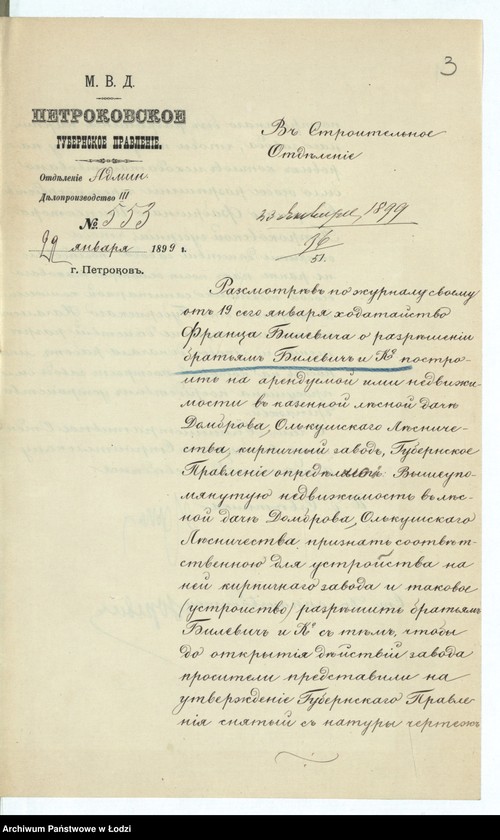 3
М. В. Д.
ПЕТРОКОВСКОЕ
ГУБЕРНСКОЕ ПРАВЛЕНІЕ.
Отдѣленіе Админ
Дѣлопроизводство III
№ 553
29 января 1899 г.
г. Петроковъ.
Въ Строительное
Отдѣленіе
1899
96
51.
Разсмотрѣвъ по журналу своему
отъ 19 сего января ходатайство
Франца Билевича о разрѣшеніи
братьямъ Билевичъ и Ко постро-
ить на арендуемой ими недвижи-
мости въ казенной лѣсной дачѣ
Домброва, Олькушскаго Лѣсниче-
ства, кирпичный заводъ, Губернское
Правленіе опредѣляетъ: Вышеупо-
мянутую недвижимость въ лѣс-
ной дачѣ Домброва, Олькушскаго
Лѣсничества признать соотвѣт-
ственною для устройства на
ней кирпичнаго завода и таковое
(устройство) разрѣшить братьямъ
Билевичъ и Ко съ тѣмъ, чтобы
до открытія дѣйствій завода
просители представили на
утвержденіе Губернскаго Правле-
нія снятый съ натуры чертежъ
Archiwum Państwowe w Łodzi